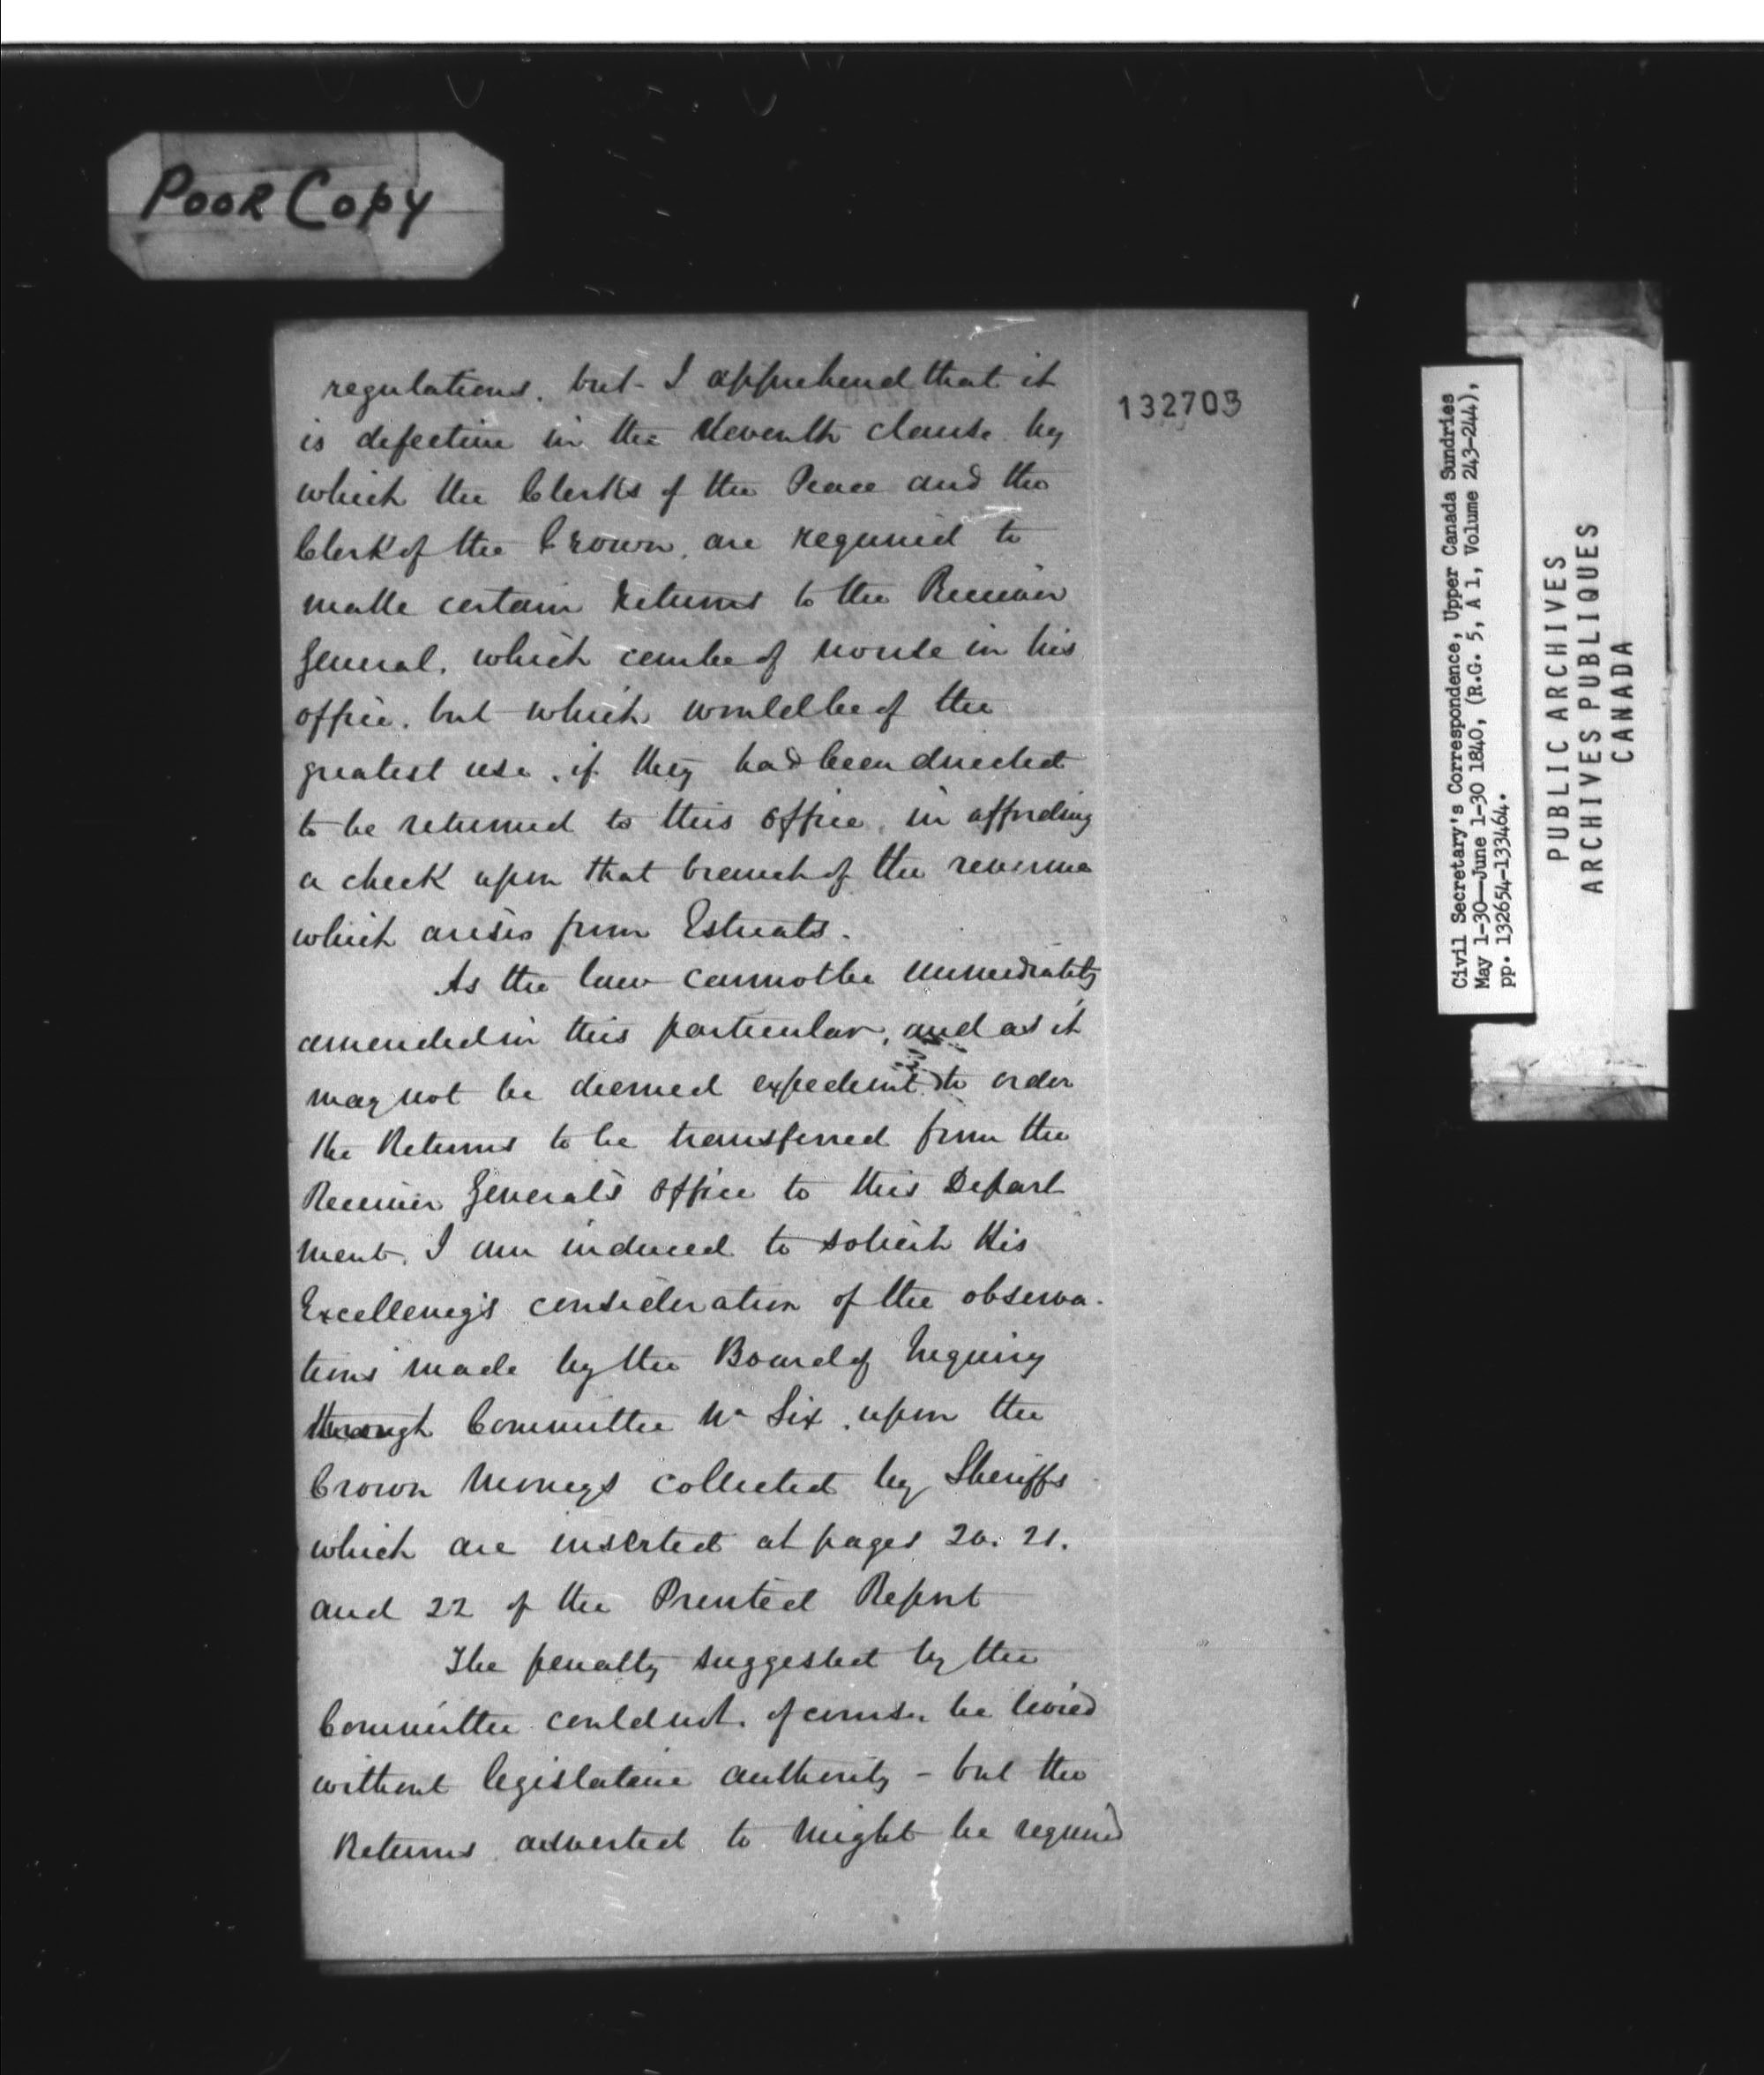 Poor Copy
132703
regulations. but I apprehend that it
is defective in the eleventh clause by
which the Clerks of the Peace and the
Clerk of the Crown, are required to
make certain Returns to the Receiver
General, which can be of no use in his
office. but which would be of the
greatest use, if they had been directed
to be returned to this office, in affording
a check upon that branch of the revenue
which arises from Estreats.
As the law cannot be immediately
amended in this particular, and as it
may not be deemed expedient to order
the Returns to be transferred from the
Receiver General's office to this Depart
ment, I am induced to solicit His
Excellency's consideration of the observa-
tions made by the Board of Inquiry
through Committee No Six, upon the
Crown Moneys collected by Sheriffs
which are inserted at pages 20. 21.
and 22 of the Printed Report
The penalty suggested by the
Committee could not, of course, be levied
without legislative authority - but the
Returns adverted to might be required
Civil Secretary's Correspondence, Upper Canada Sundries
May 1-30—June 1-30 1840, (R.G. 5, A 1, Volume 243-244),
pp. 132654-133464.
PUBLIC ARCHIVES
ARCHIVES PUBLIQUES
CANADA